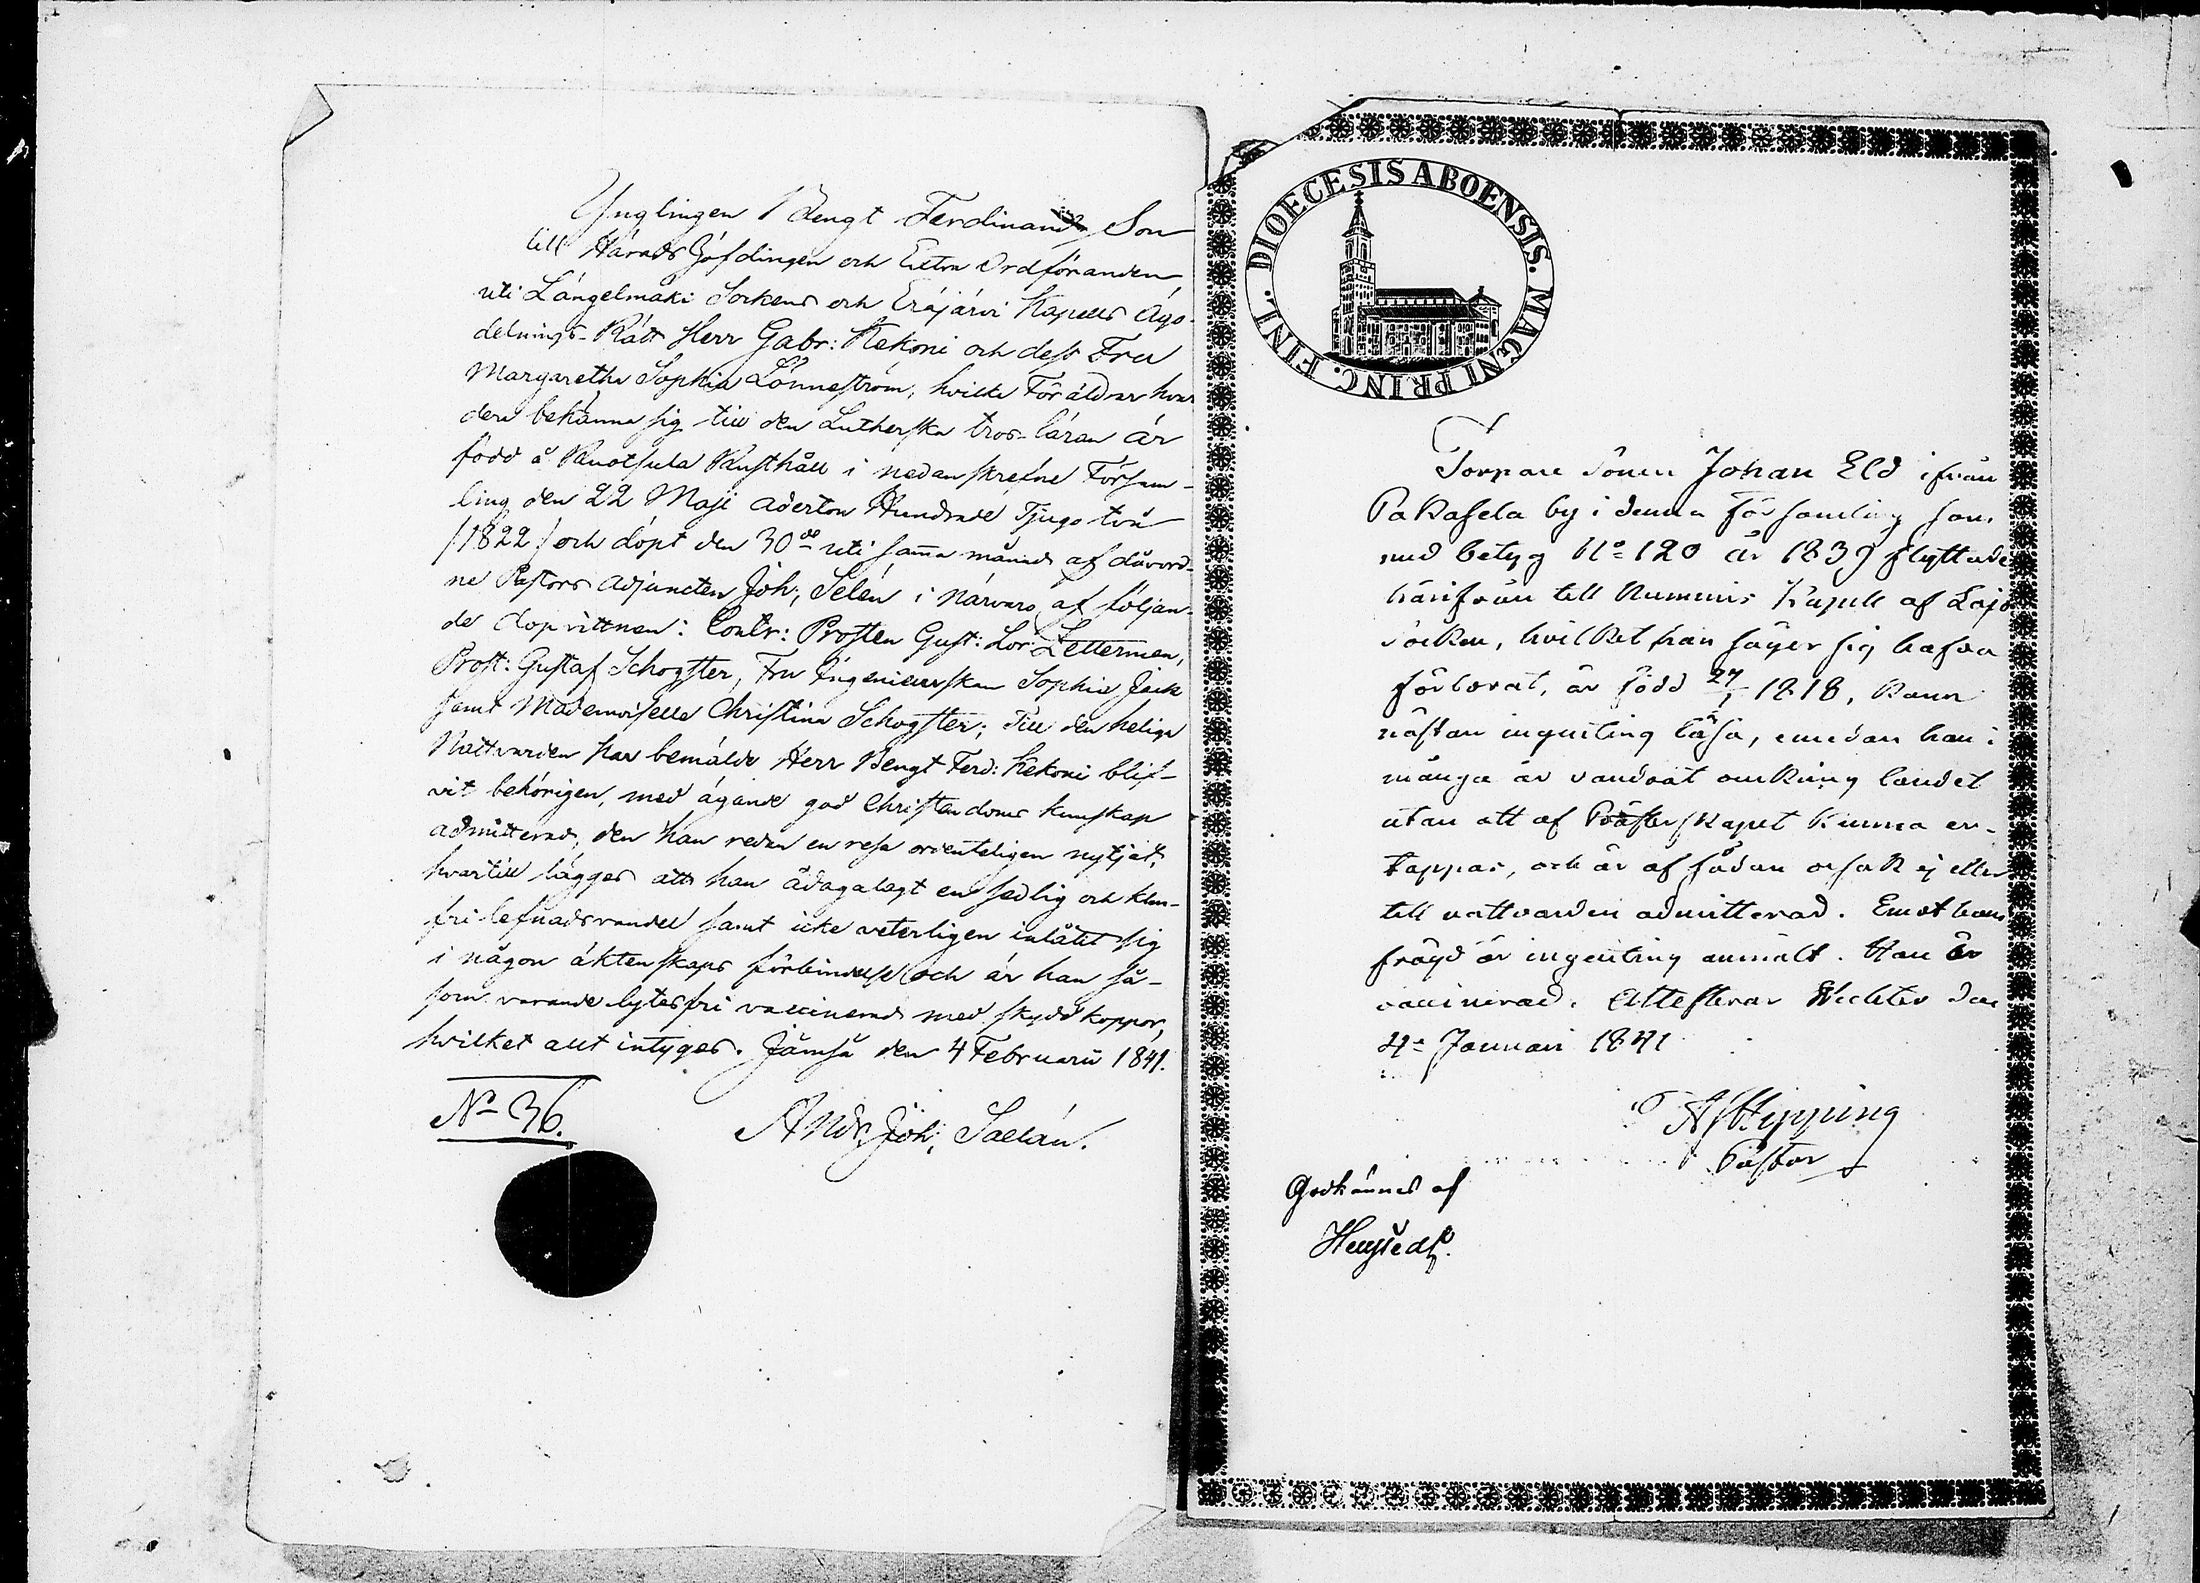 Ynglingen Bengt Ferdinand, Son
till Härads Höfdingen och Extra Ordföranden
uti Längelmäki Sockens och Eräjärvi Kapells Ägo-
delnings-Rätt Herr Gabr: Kekoni och dess Fru
Margaretha Sophia Lönneström, hvilka Föräldrar hvar
dera bekänna sig till den Lutherska tros-läran är
född å Ruotsula Rusthåll i nedanskrefne Försam-
ling den 22 Maji Aderton Hundrade Tjugo två
/1822/ och döpt den 30de uti samma månad af dåvord-
ne Pastors Adjuncten Joh; Selén i närvaro af följan-
de dopvittnen: Contr: Prosten Gust: Lor: Zetterman,
Prost: Gustaf Schogster, Fru Ingenieurskan Sophia Jack
samt Mademoiselle Christina Schogster; Till den heliga
Nattvarden har bemälde Herr Bengt Ferd: Kekoni blif-
vit behörigen, med ägande god Christendoms kunskap
admitterad, den han redan en resa ordenteligen nytjat,
hvartill lägges att han ådagalagt en sedlig och klan-
fri lefnadsvandel samt icke veterligen inlåtit sig
i någon äktenskaps förbindelse och är han så-
som varande lytesfri vaccinerad med skyddkoppor,
hvilket allt intyges. Jämsä den 4 Februarii 1841.
No 36.
Andr Joh; Saelán.
DIOECESIS ABOENSIS. MAGNI PRINC. FINL.
Torpare Sonen Johan Eld ifrån
Pakasela by i denna församling som
med betyg No 120 år 1839 flyttade
härifrån till Nummis Kapell af Lojo
socken, hvilket han säger sig hafva
förlorat, är född 27/1 1818, kann
nästan ingenting läsa, emedan han i
många år vandrat omkring landet
utan att af Prästerskapet kunna er-
tappas, och är af sådan orsak ej eller
till nattvarden admitterad. Emot hans
frägd är ingenting anmält. Han är
vaccinerad. Attesterar Wichtis den
4e Januari 1841
AJHipping
Pastor
Godkännes af